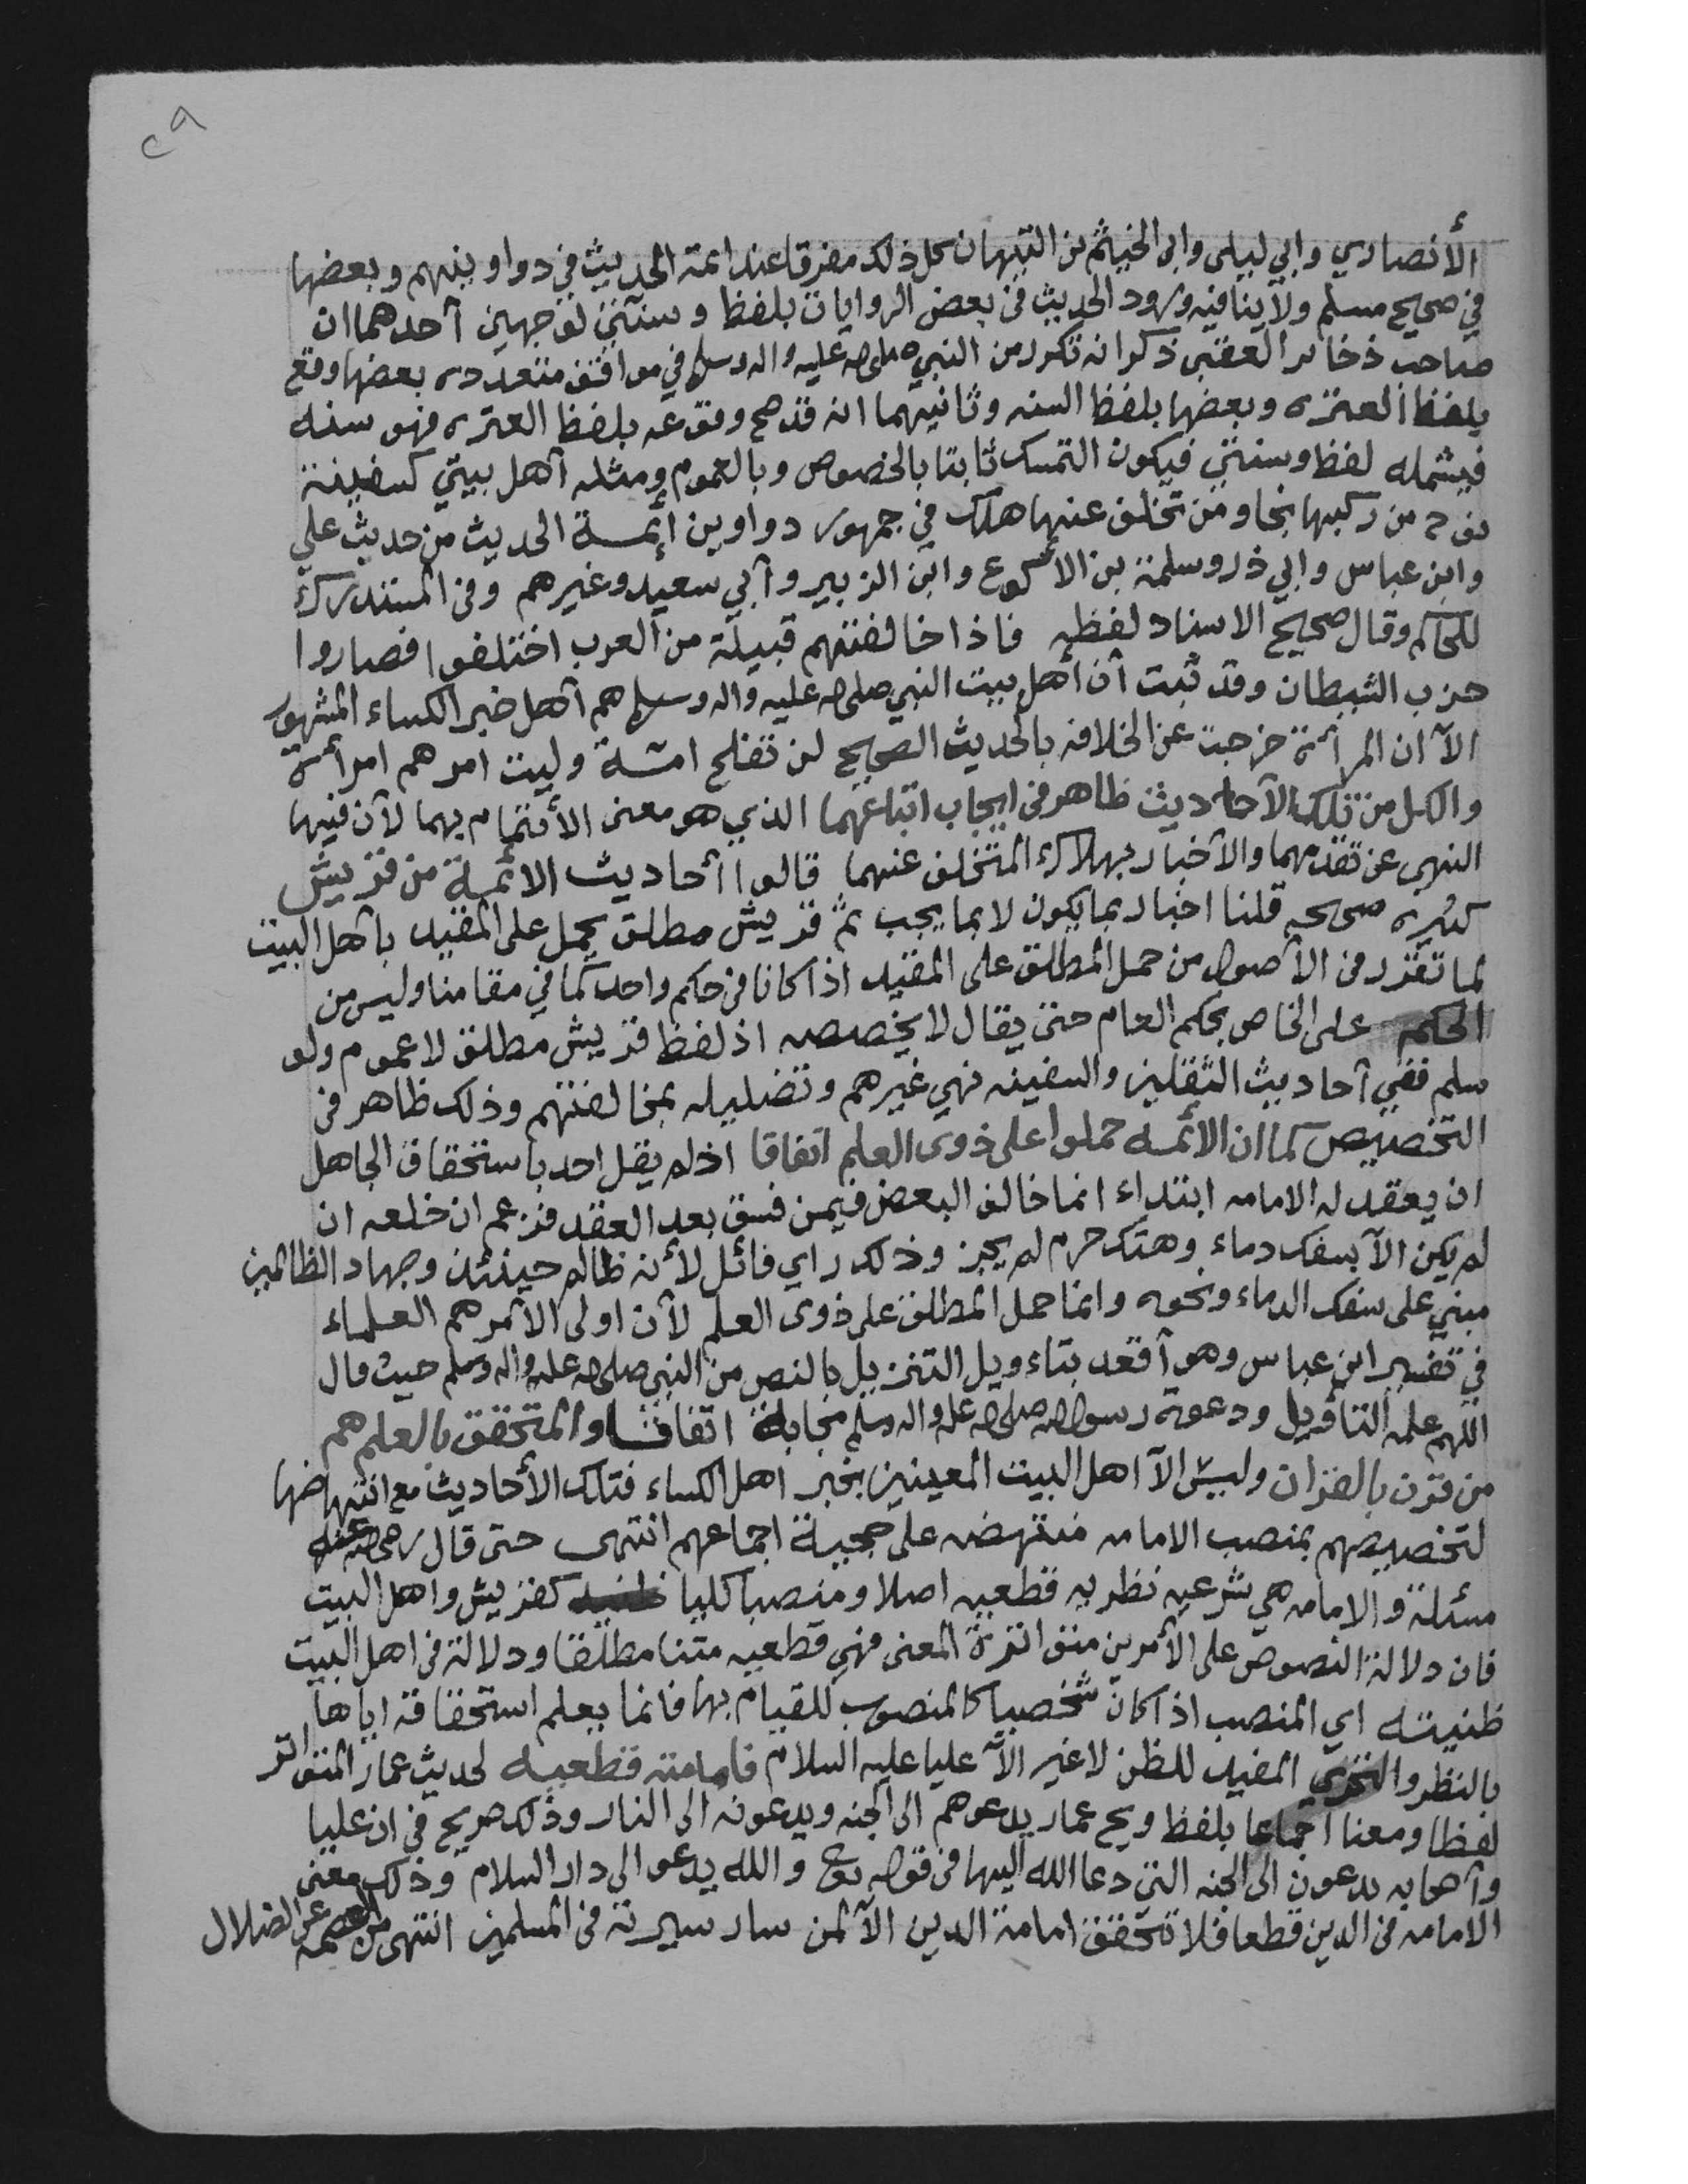 ٢٩
الأنصاري وابي ليلى وابي الخيثم بن التيهان كل ذلك مفرقا عند ائمة الحديث في دواوينهم وبعضها
في صحيح مسلم ولا ينافيه ورود الحديث في بعض الروايات بلفظ وسنتي لوجهين أحدهما ان
صاحب ذخائر العقبى ذكر انه تكرر من النبي صلى الله عليه واله وسلم في مواقف متعدده بعضها وقع
بلفظ العتره وبعضها بلفظ السنه وثانيهما انه قد صح وقوعه بلفظ العتره فهو سنه
فيشمله لفظ وسنتي فيكون التمسك ثابتا بالخصوص وبالعموم ومثله أهل بيتي كسفينة
نوح من ركبها نجا ومن تخلف عنها هلك في جمهور دواوين أئمة الحديث من حديث علي
وابن عباس وابي ذر وسلمة بن الأكوع وابن الزبير وأبي سعيد وغيرهم وفي المستدرك
للحاكم وقال صحيح الاسناد لفظه فاذا خالفتهم قبيلة من العرب اختلفوا فصاروا
حزب الشيطان وقد ثبت أن أهل بيت النبي صلى الله عليه واله وسلم هم أهل خبر الكساء المشهور
الآ ان المرأة خرجت عن الخلافه بالحديث الصحيح لن تفلح امة وليت امرهم امرأة
والكل من تلك الأحاديث ظاهر في ايجاب اتباعهما الذي هو معنى الأئتمام بهما لأن فيها
النهي عن تقدمهما والأخبار بهلاك المتخلف عنهما قالوا أحاديث الائمة من قريش
كثيره صحيحه قلنا اخبار بما يكون لا بما يجب ثم قريش مطلق يحمل على المقيد بأهل البيت
لما تقرر في الأصول من حمل المطلق على المقيد اذا كانا في حكم واحد كما في مقامنا وليس من
الحكم على الخاص بحكم العام حتى يقال لا يخصصه اذ لفظ قريش مطلق لا عموم ولو
سلم ففي أحاديث الثقلين والسفينه نهي غيرهم وتضليله بمخالفتهم وذلك ظاهر في
التخصيص كما ان الأئمه حملوا على ذوي العلم اتفاقا اذ لم يقل احد باستحقاق الجاهل
ان يعقد له الامامه ابتداء انما خالف البعض فيمن فسق بعد العقد فزعم ان خلعه ان
لم يكن الآ بسفك دماء وهتك حرم لم يجز وذلك راي فائل لأنه ظالم حينئذ وجهاد الظالمين
مبني على سفك الدماء ونحوه وانما حمل المطلق على ذوي العلم لأن اولى الأمر هم العلماء
في تفسير ابن عباس وهو أقعد بتاءويل التنزيل بالنص من النبي صلى الله عليه واله وسلم حيث قال
اللهم علمه التأويل ودعوة رسول الله صلى الله عليه واله وسلم مجابة اتفاقا والمتحقق بالعلم هم
من قرن بالقران وليس الآ اهل البيت المعينين بخبر اهل الكساء فتلك الأحاديث مع انتهاضها
لتخصيصهم بمنصب الامامه منتهضه على حجية اجماعهم انتهى حتى قال رضي الله عنه
مسئلة والامامه هي شرعيه نظريه قطعيه اصلا ومنصبا كليا كقريش واهل البيت
فان دلالة النصوص على الأمرين متواترة المعنى فهي قطعيه متنا مطلقا ودلالة في اهل البيت
ظنيته اي المنصب اذا كان شخصيا كالمنصوب للقيام بها فانما يعلم استحقاقه اياها
بالنظر والتحري المفيد للظن لا غير الآ عليا عليه السلام فامامته قطعيه لحديث عمار المتواتر
لفظا ومعنا اجماعا بلفظ ويح عمار يدعوهم الى الجنه ويدعونه الى النار وذلك صريح في ان عليا
وأصحابه يدعون الى الجنه التي دعا الله اليها في قوله تعالى والله يدعو الى دار السلام وذلك معنى
الامامه في الدين قطعا فلا تتحقق امامة الدين الآ لمن سار سيرته في المسلمين انتهى من العصمه عن الضلال